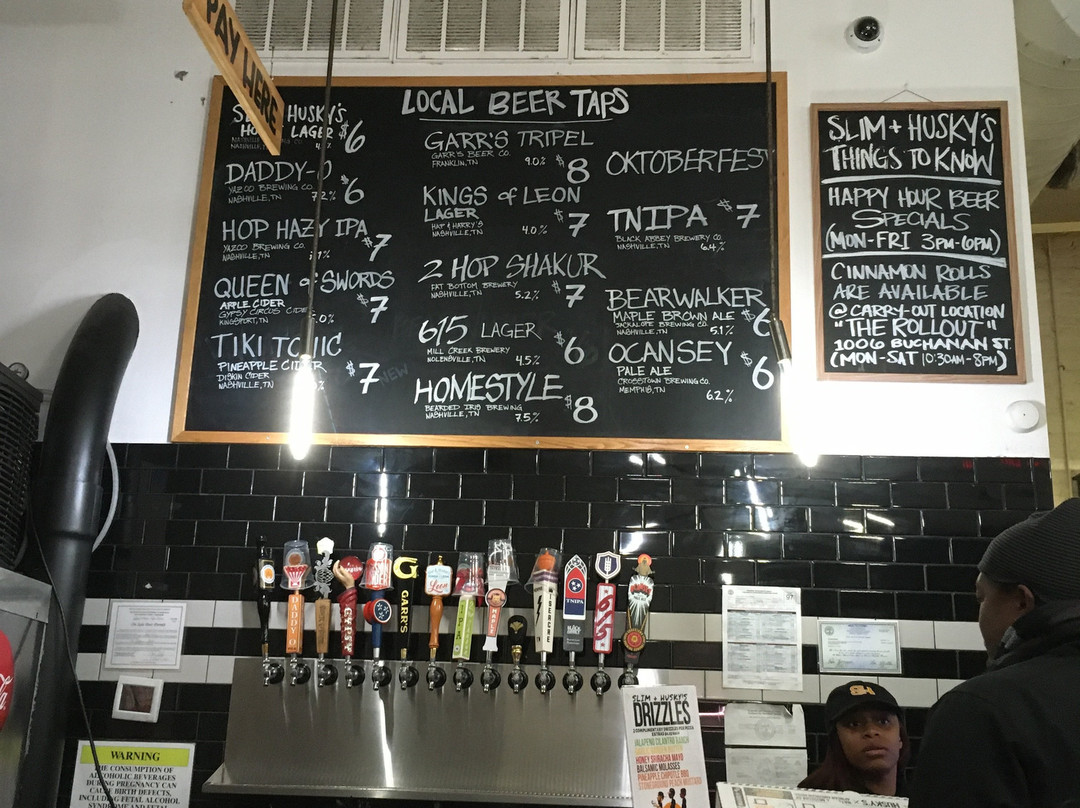 PAY HERE
LOCAL BEER TAPS
HUSKY'S
LAGER $6
DADDY-O
YAZOO BREWING CO.
NASHVILLE, TN 7.2% $6
HOP HAZY IPA
YAZOO BREWING CO.
NASHVILLE, TN $7
QUEEN of SWORDS
APPLE CIDER
GYPSY CIRCUS CIDER
KINGSPORT, TN $7
TIKI TONIC
PINEAPPLE CIDER
DISKIN CIDER
NASHVILLE, TN $7
NEW
GARR'S TRIPEL
GARR'S BEER CO.
FRANKLIN, TN 9.0% $8
KINGS of LEON
LAGER
HAP & HARRY'S
NASHVILLE, TN 4.0% $7
2 HOP SHAKUR
FAT BOTTOM BREWERY
NASHVILLE, TN 5.2% $7
615 LAGER
MILL CREEK BREWERY
NOLENSVILLE, TN 4.5% $6
HOMESTYLE
BEARDED IRIS BREWING
NASHVILLE, TN 7.5% $8
OKTOBERFEST
TNIPA $7
BLACK ABBEY BREWERY CO.
NASHVILLE, TN 6.4%
BEARWALKER
MAPLE BROWN ALE $6
JACKALOPE BREWING CO.
NASHVILLE, TN 5.1%
OCANSEY
PALE ALE $6
CROSSTOWN BREWING CO.
MEMPHIS, TN 6.2%
SLIM + HUSKY'S
THINGS TO KNOW
HAPPY HOUR BEER
SPECIALS
(MON-FRI 3PM-6PM)
CINNAMON ROLLS
ARE AVAILABLE
@ CARRY-OUT LOCATION
"THE ROLLOUT"
1006 BUCHANAN ST.
(MON-SAT 10:30AM-8PM)
DADDY-O
G
GARR'S
Leon
TNIPA
615
WARNING
THE CONSUMPTION OF
ALCOHOLIC BEVERAGES
DURING PREGNANCY CAN
CAUSE BIRTH DEFECTS,
INCLUDING FETAL ALCOHOL
SYNDROME AND FETAL
SLIM + HUSKY'S
DRIZZLES
JALAPEÑO CILANTRO RANCH
HONEY SRIRACHA MAYO
BALSAMIC MOLASSES
PINEAPPLE CHIPOTLE BBQ
STONEGROUND PEACH MUSTARD